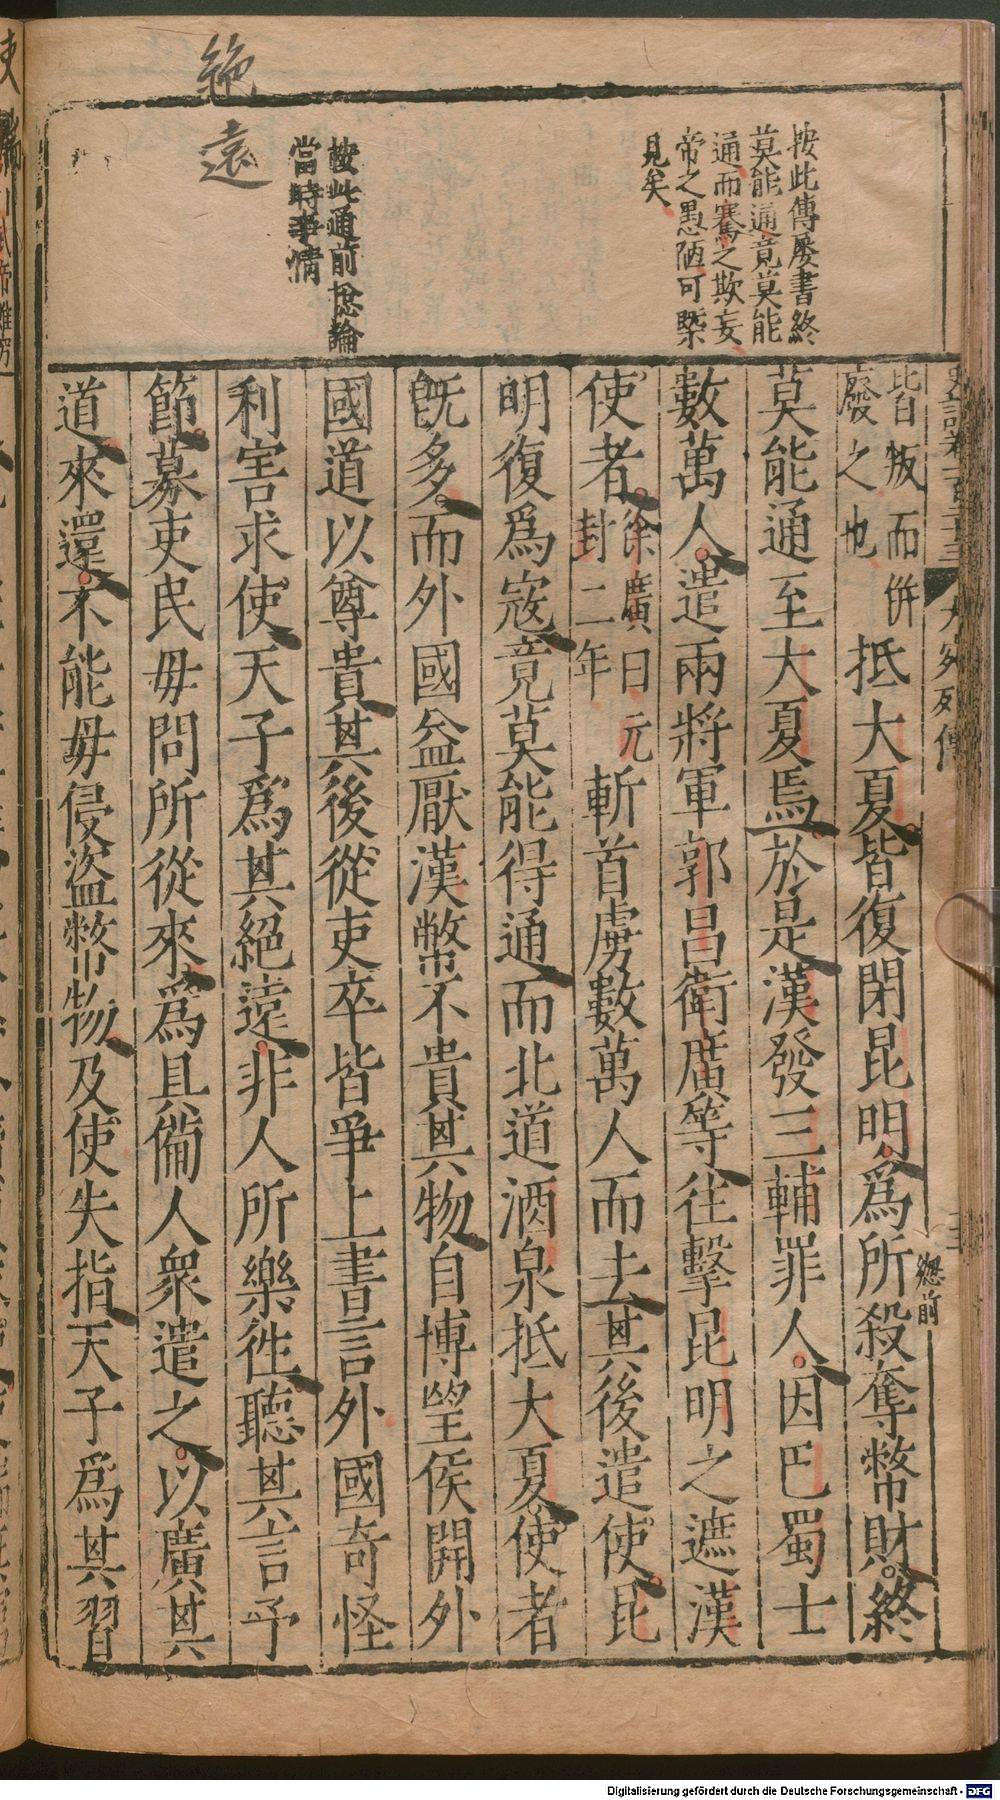 絶遠
按此傳屡書終
莫能通竟莫能
通而騫之欺妄
帝之愚陋可槩
見矣
按此通前総論
當時事情
史記卷一百二十三 大宛列傳
總前
皆叛而併
廢之也
抵大夏皆復閉昆明爲所殺奪幣財終
莫能通至大夏焉於是漢發三輔罪人因巴蜀士
數萬人遣兩將軍郭昌衛廣等往擊昆明之遮漢
使者
徐廣曰元
封二年
斬首虜數萬人而去其後遣使昆
明復爲寇竟莫能得通而北道酒泉抵大夏使者
旣多而外國益厭漢幣不貴其物自博望侯開外
國道以尊貴其後從吏卒皆爭上書言外國奇怪
利害求使天子爲其絕遠非人所樂徃聽其言予
節募吏民毋問所從來爲具備人衆遣之以廣其
道來還不能毋侵盜幣物及使失指天子爲其習
Digitalisierung gefördert durch die Deutsche Forschungsgemeinschaft - DFG